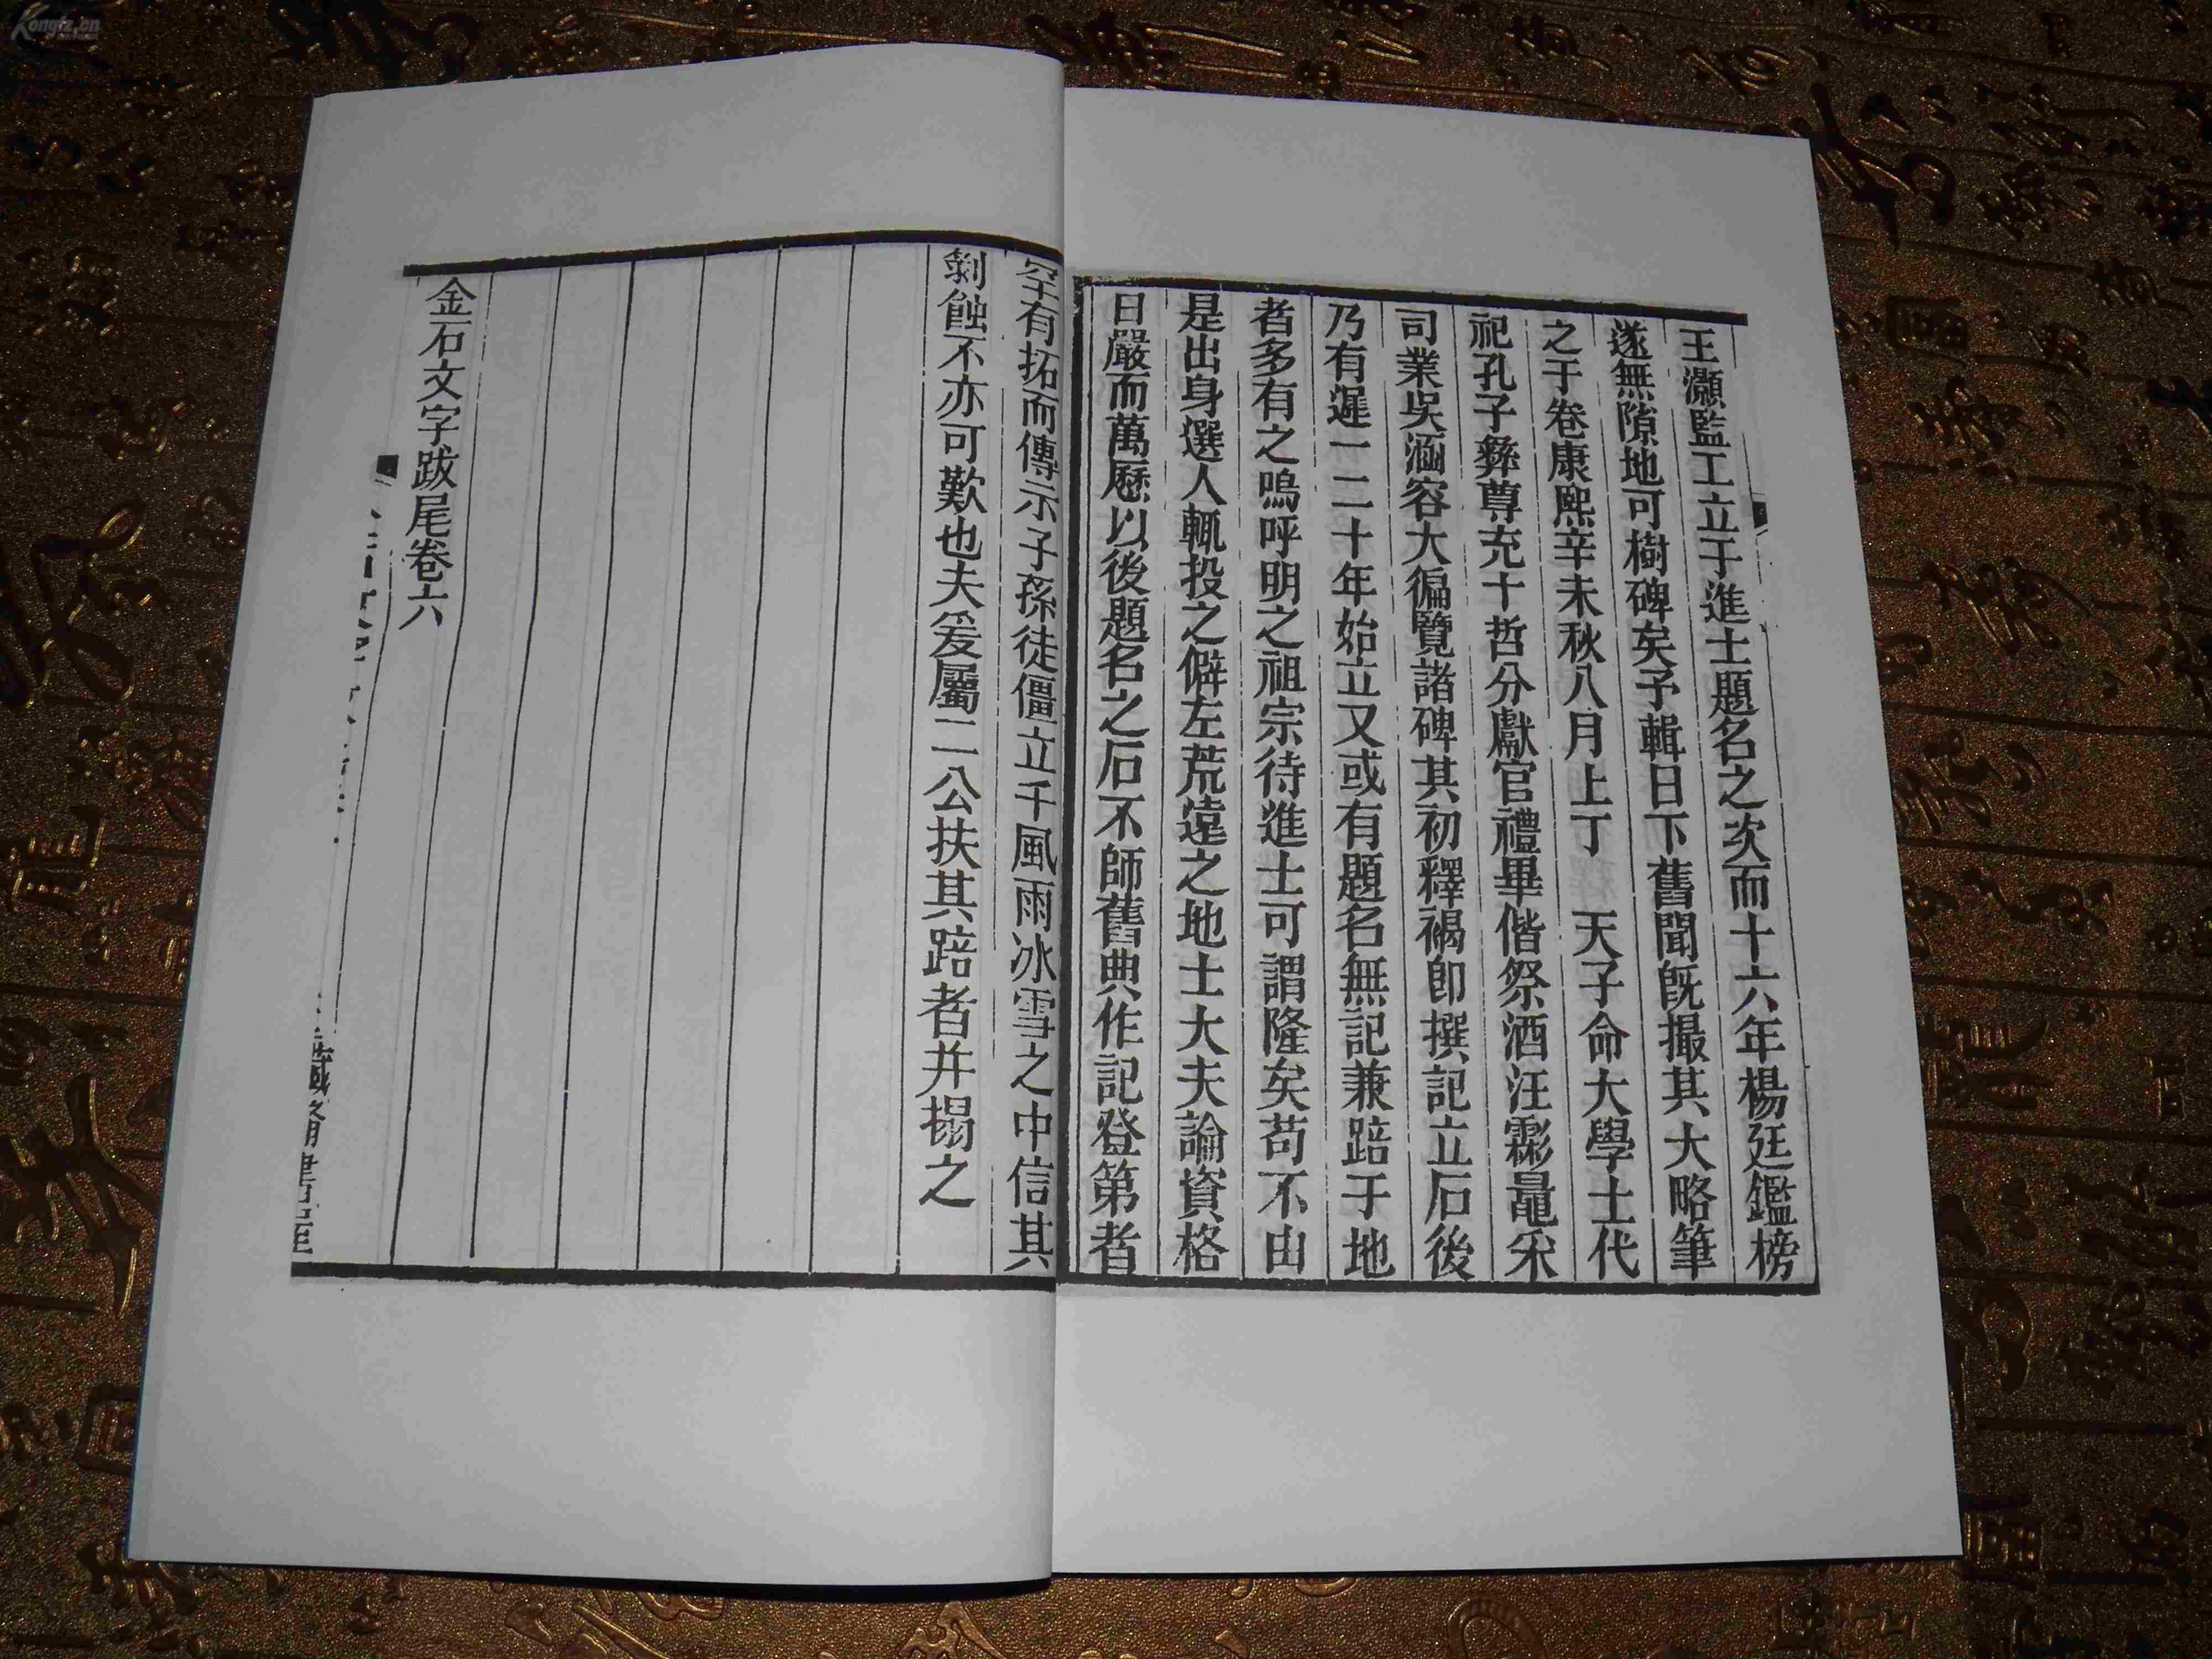 王灝監工立于進士題名之次而十六年楊廷鑑榜
遂無隙地可樹碑矣予輯日下舊聞旣撮其大略筆
之于卷康熙辛未秋八月上丁　天子命大學士代
祀孔子彝尊充十哲分獻官禮畢偕祭酒汪霦鼂采
司業吳涵容大徧覽諸碑其初釋褐卽撰記立石後
乃有遲一二十年始立又或有題名無記兼踣于地
者多有之嗚呼明之祖宗待進士可謂隆矣苟不由
是出身選人輒投之僻左荒遠之地士大夫論資格
日嚴而萬曆以後題名之石不師舊典作記登第者
罕有拓而傳示子孫徒僵立千風雨冰雪之中信其
剝蝕不亦可歎也夫爰屬二公扶其踣者并搨之
金石文字跋尾卷六
Kongfz.cn